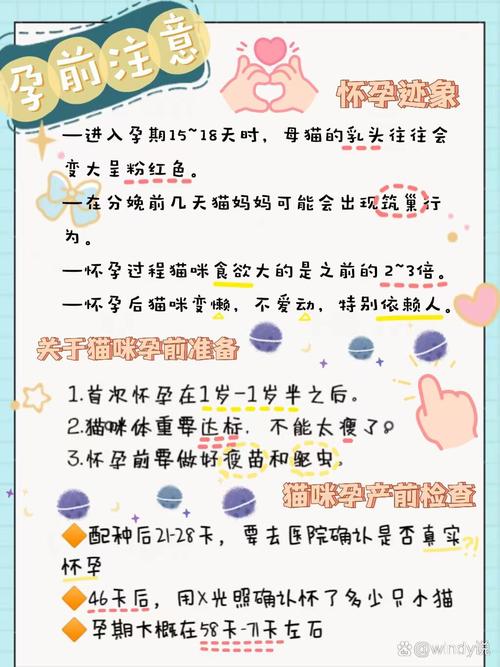 孕前注意
怀孕迹象
—进入孕期15~18天时，母猫的乳头往往会
变大呈粉红色。
—在分娩前几天猫妈妈可能会出现筑巢行
为。
—怀孕过程猫咪食欲大的是之前的2~3倍。
—怀孕后猫咪变懒，不爱动，特别依赖人。
关于猫咪孕前准备
1.首次怀孕在1岁-1岁半之后。
2.猫咪体重要达标，不能太瘦了。
3.怀孕前要做好疫苗和驱虫。
猫咪孕产前检查
配种后21-28天，要去医院确认是否真实?!
怀孕
46天后，用X光照确认怀了多少只小猫
孕期大概在58天-71天左右
@windy说